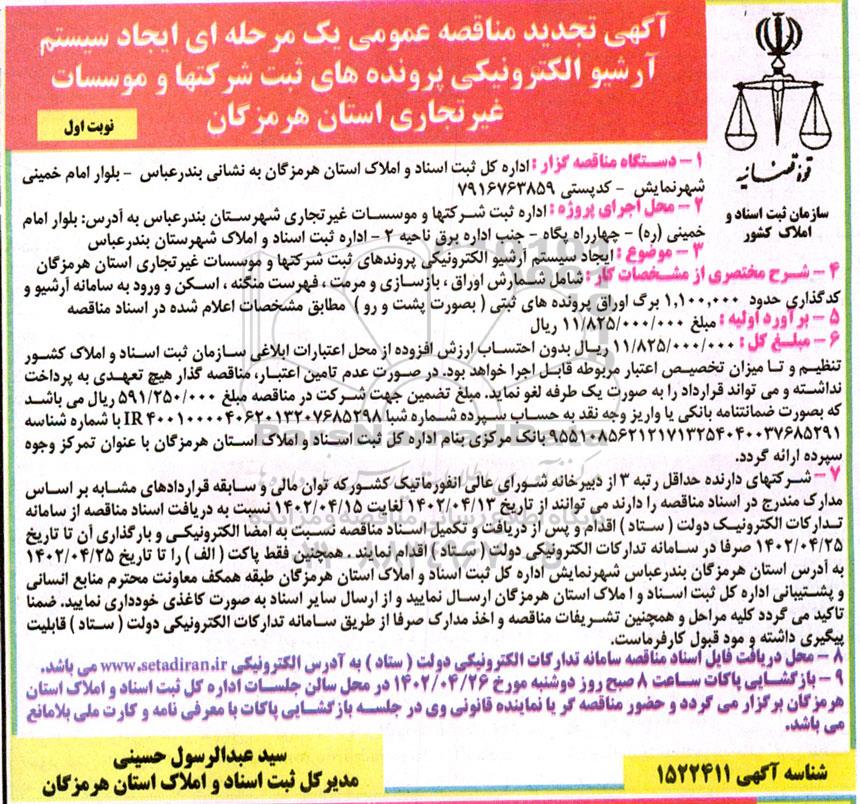 آگهی تجدید مناقصه عمومی یک مرحله ای ایجاد سیستم
آرشیو الکترونیکی پرونده های ثبت شرکتها و موسسات
غیرتجاری استان هرمزگان
نوبت اول
قوه قضائیه
سازمان ثبت اسناد و
املاک کشور
۱ – دستگاه مناقصه گزار : اداره کل ثبت اسناد و املاک استان هرمزگان به نشانی بندرعباس – بلوار امام خمینی
شهرنمایش – کدپستی ۷۹۱۶۷۶۳۸۵۹
۲ – محل اجرای پروژه : اداره ثبت شرکتها و موسسات غیرتجاری شهرستان بندرعباس به آدرس: بلوار امام
خمینی (ره) – چهارراه پگاه – جنب اداره برق ناحیه ۲ – اداره ثبت اسناد و املاک شهرستان بندرعباس
۳ – موضوع : ایجاد سیستم آرشیو الکترونیکی پروندهای ثبت شرکتها و موسسات غیرتجاری استان هرمزگان
۴ – شرح مختصری از مشخصات کار : شامل شمارش اوراق ، بازسازی و مرمت ، فهرست منگنه ، اسکن و ورود به سامانه آرشیو و
کدگذاری حدود ۱,۱۰۰,۰۰۰ برگ اوراق پرونده های ثبتی ( بصورت پشت و رو ) مطابق مشخصات اعلام شده در اسناد مناقصه
۵ – برآورد اولیه : مبلغ ۱۱/۸۲۵/۰۰۰/۰۰۰ ریال
۶ – مبلغ کل : ۱۱/۸۲۵/۰۰۰/۰۰۰ ریال بدون احتساب ارزش افزوده از محل اعتبارات ابلاغی سازمان ثبت اسناد و املاک کشور
تنظیم و تا میزان تخصیص اعتبار مربوطه قابل اجرا خواهد بود. در صورت عدم تامین اعتبار، مناقصه گذار هیچ تعهدی به پرداخت
نداشته و می تواند قرارداد را به صورت یک طرفه لغو نماید. مبلغ تضمین جهت شرکت در مناقصه مبلغ ۵۹۱/۲۵۰/۰۰۰ ریال می باشد
که بصورت ضمانتنامه بانکی یا واریز وجه نقد به حساب سپرده شماره شبا IR ۴۰۰۱۰۰۰۰۴۰۶۲۰۱۳۲۰۷۶۸۵۲۹۸ با شماره شناسه
۹۵۵۱۰۸۵۶۲۱۲۱۷۱۳۲۵۴۰۴۰۰۳۷۶۸۵۲۹۱ بانک مرکزی بنام اداره کل ثبت اسناد و املاک استان هرمزگان با عنوان تمرکز وجوه
سپرده ارائه گردد.
۷– شرکتهای دارنده حداقل رتبه ۳ از دبیرخانه شورای عالی انفورماتیک کشورکه توان مالی و سابقه قراردادهای مشابه بر اساس
مدارک مندرج در اسناد مناقصه را دارند می توانند از تاریخ ۱۴۰۲/۰۴/۱۳ لغایت ۱۴۰۲/۰۴/۱۵ نسبت به دریافت اسناد مناقصه از سامانه
تدارکات الکترونیک دولت ( ستاد ) اقدام و پس از دریافت و تکمیل اسناد مناقصه نسبت به امضا الکترونیکی و بارگذاری آن تا تاریخ
۱۴۰۲/۰۴/۲۵ صرفا در سامانه تدارکات الکترونیکی دولت ( ستاد ) اقدام نمایند . همچنین فقط پاکت ( الف ) را تا تاریخ ۱۴۰۲/۰۴/۲۵
به آدرس استان هرمزگان بندرعباس شهرنمایش اداره کل ثبت اسناد و املاک استان هرمزگان طبقه همکف معاونت محترم منابع انسانی
و پشتیبانی اداره کل ثبت اسناد و املاک استان هرمزگان ارسال نمایید و از ارسال سایر اسناد به صورت کاغذی خودداری نمایید. ضمنا
تاکید می گردد کلیه مراحل و همچنین تشریفات مناقصه و اخذ مدارک صرفا از طریق سامانه تدارکات الکترونیکی دولت ( ستاد ) قابلیت
پیگیری داشته و مود قبول کارفرماست.
۸ – محل دریافت فایل اسناد مناقصه سامانه تدارکات الکترونیکی دولت ( ستاد ) به آدرس الکترونیکی www.setadiran.ir می باشد.
۹ – بازگشایی پاکات ساعت ۸ صبح روز دوشنبه مورخ ۱۴۰۲/۰۴/۲۶ در محل سالن جلسات اداره کل ثبت اسناد و املاک استان
هرمزگان برگزار می گردد و حضور مناقصه گر یا نماینده قانونی وی در جلسه بازگشایی پاکات با معرفی نامه و کارت ملی بلامانع
می باشد.
سید عبدالرسول حسینی
مدیرکل ثبت اسناد و املاک استان هرمزگان
شناسه آگهی ۱۵۲۲۴۱۱